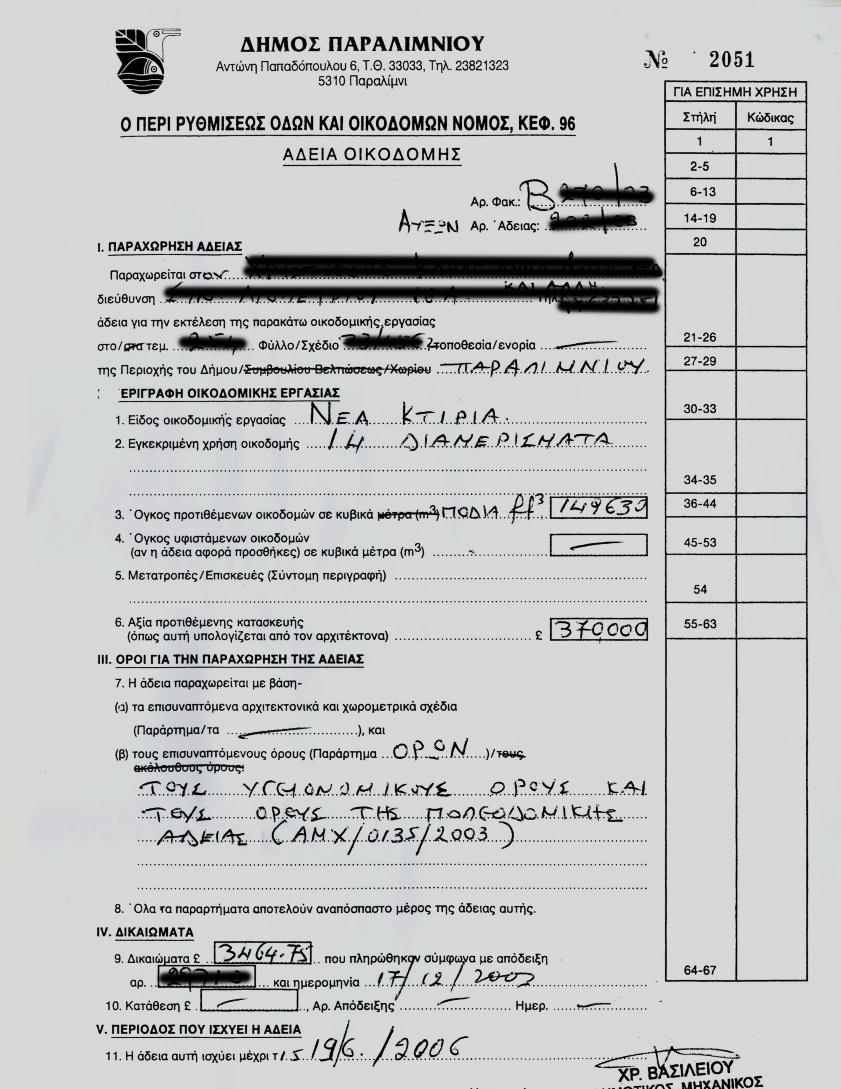 ΔΗΜΟΣ ΠΑΡΑΛΙΜΝΙΟΥ
Αντώνη Παπαδόπουλου 6, Τ.Θ. 33033, Τηλ. 23821323
5310 Παραλίμνι
№ 2051
ΓΙΑ ΕΠΙΣΗΜΗ ΧΡΗΣΗ
Στήλη Κώδικας
1 1
2-5
6-13
14-19
20
21-26
27-29
30-33
34-35
36-44
45-53
54
55-63
64-67
Ο ΠΕΡΙ ΡΥΘΜΙΣΕΩΣ ΟΔΩΝ ΚΑΙ ΟΙΚΟΔΟΜΩΝ ΝΟΜΟΣ, ΚΕΦ. 96
ΑΔΕΙΑ ΟΙΚΟΔΟΜΗΣ
Αρ. Φακ.: Β
Αρ. Άδειας:
Ι. ΠΑΡΑΧΩΡΗΣΗ ΑΔΕΙΑΣ
Παραχωρείται στον
διεύθυνση
άδεια για την εκτέλεση της παρακάτω οικοδομικής εργασίας
στο/στα τεμ. Φύλλο/Σχέδιο τοποθεσία/ενορία —
της Περιοχής του Δήμου/Συμβουλίου Βελτιώσεως/Χωρίου ΠΑΡΑΛΙΜΝΙΟΥ
ΕΡΙΓΡΑΦΗ ΟΙΚΟΔΟΜΙΚΗΣ ΕΡΓΑΣΙΑΣ
1. Είδος οικοδομικής εργασίας ΝΕΑ ΚΤΙΡΙΑ.
2. Εγκεκριμένη χρήση οικοδομής 14 ΔΙΑΜΕΡΙΣΜΑΤΑ
3. Όγκος προτιθέμενων οικοδομών σε κυβικά μέτρα (m³) ΠΟΔΙΑ ft³ 149630
4. Όγκος υφιστάμενων οικοδομών
(αν η άδεια αφορά προσθήκες) σε κυβικά μέτρα (m³) —
5. Μετατροπές/Επισκευές (Σύντομη περιγραφή)
6. Αξία προτιθέμενης κατασκευής
(όπως αυτή υπολογίζεται από τον αρχιτέκτονα) £ 370000
ΙΙΙ. ΟΡΟΙ ΓΙΑ ΤΗΝ ΠΑΡΑΧΩΡΗΣΗ ΤΗΣ ΑΔΕΙΑΣ
7. Η άδεια παραχωρείται με βάση-
(α) τα επισυναπτόμενα αρχιτεκτονικά και χωρομετρικά σχέδια
(Παράρτημα/τα —), και
(β) τους επισυναπτόμενους όρους (Παράρτημα ΟΡΩΝ)/τους
ακόλουθους όρους:
ΤΟΥΣ ΥΓΕΙΟΝΟΜΙΚΟΥΣ ΟΡΟΥΣ ΚΑΙ
ΤΟΥΣ ΟΡΟΥΣ ΤΗΣ ΠΟΛΕΟΔΟΜΙΚΗΣ
ΑΔΕΙΑΣ (ΑΜΧ/0135/2003)
8. Όλα τα παραρτήματα αποτελούν αναπόσπαστο μέρος της άδειας αυτής.
IV. ΔΙΚΑΙΩΜΑΤΑ
9. Δικαιώματα £ 3464.75 που πληρώθηκαν σύμφωνα με απόδειξη
αρ. και ημερομηνία 17/12/2003
10. Κατάθεση £ —, Αρ. Απόδειξης — Ημερ. —
V. ΠΕΡΙΟΔΟΣ ΠΟΥ ΙΣΧΥΕΙ Η ΑΔΕΙΑ
11. Η άδεια αυτή ισχύει μέχρι τις 19/6./2006
ΧΡ. ΒΑΣΙΛΕΙΟΥ
ΔΗΜΟΤΙΚΟΣ ΜΗΧΑΝΙΚΟΣ